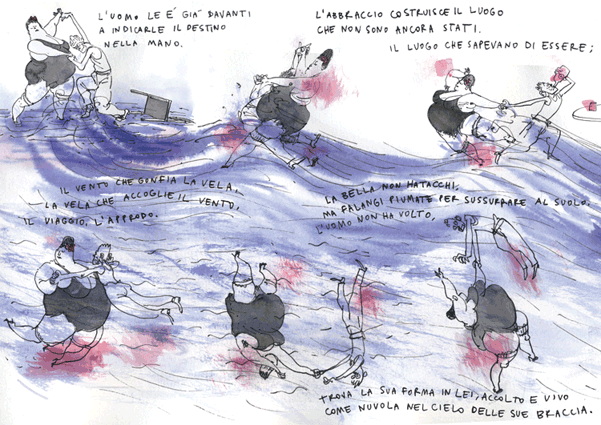 L'UOMO LE E' GIA' DAVANTI
A INDICARLE IL DESTINO
NELLA MANO.
L'ABBRACCIO COSTRUISCE IL LUOGO
CHE NON SONO ANCORA STATI.
IL LUOGO CHE SAPEVANO DI ESSERE;
IL VENTO CHE GONFIA LA VELA,
LA VELA CHE ACCOGLIE IL VENTO,
IL VIAGGIO, L'APPRODO.
LA BELLA NON HA TACCHI,
MA FALANGI PIUMATE PER SUSSURRARE AL SUOLO.
L'UOMO NON HA VOLTO,
TROVA LA SUA FORMA IN LEI, ACCOLTO E VIVO
COME NUVOLA NEL CIELO DELLE SUE BRACCIA.